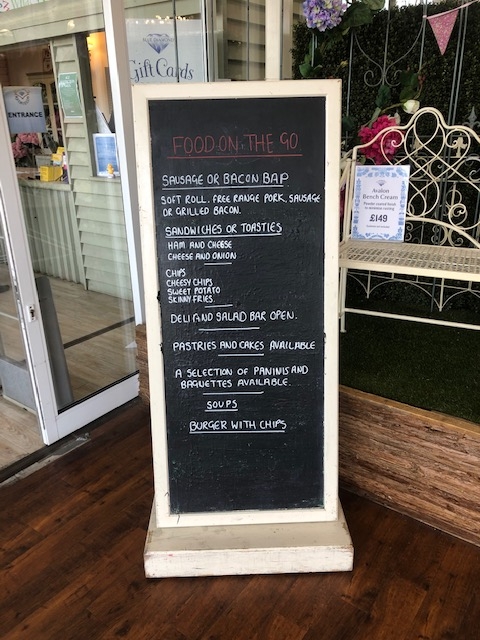 Gift Cards
ENTRANCE
FOOD ON THE GO
SAUSAGE OR BACON BAP
SOFT ROLL. FREE RANGE PORK, SAUSAGE
OR GRILLED BACON.
SANDWICHES OR TOASTIES
HAM AND CHEESE
CHEESE AND ONION
CHIPS
CHEESY CHIPS
SWEET POTATO
SKINNY FRIES
DELI AND SALAD BAR OPEN.
PASTRIES AND CAKES AVAILABLE
A SELECTION OF PANINIS AND
BAGUETTES AVAILABLE.
SOUPS
BURGER WITH CHIPS
Avalon
Bench Cream
£149